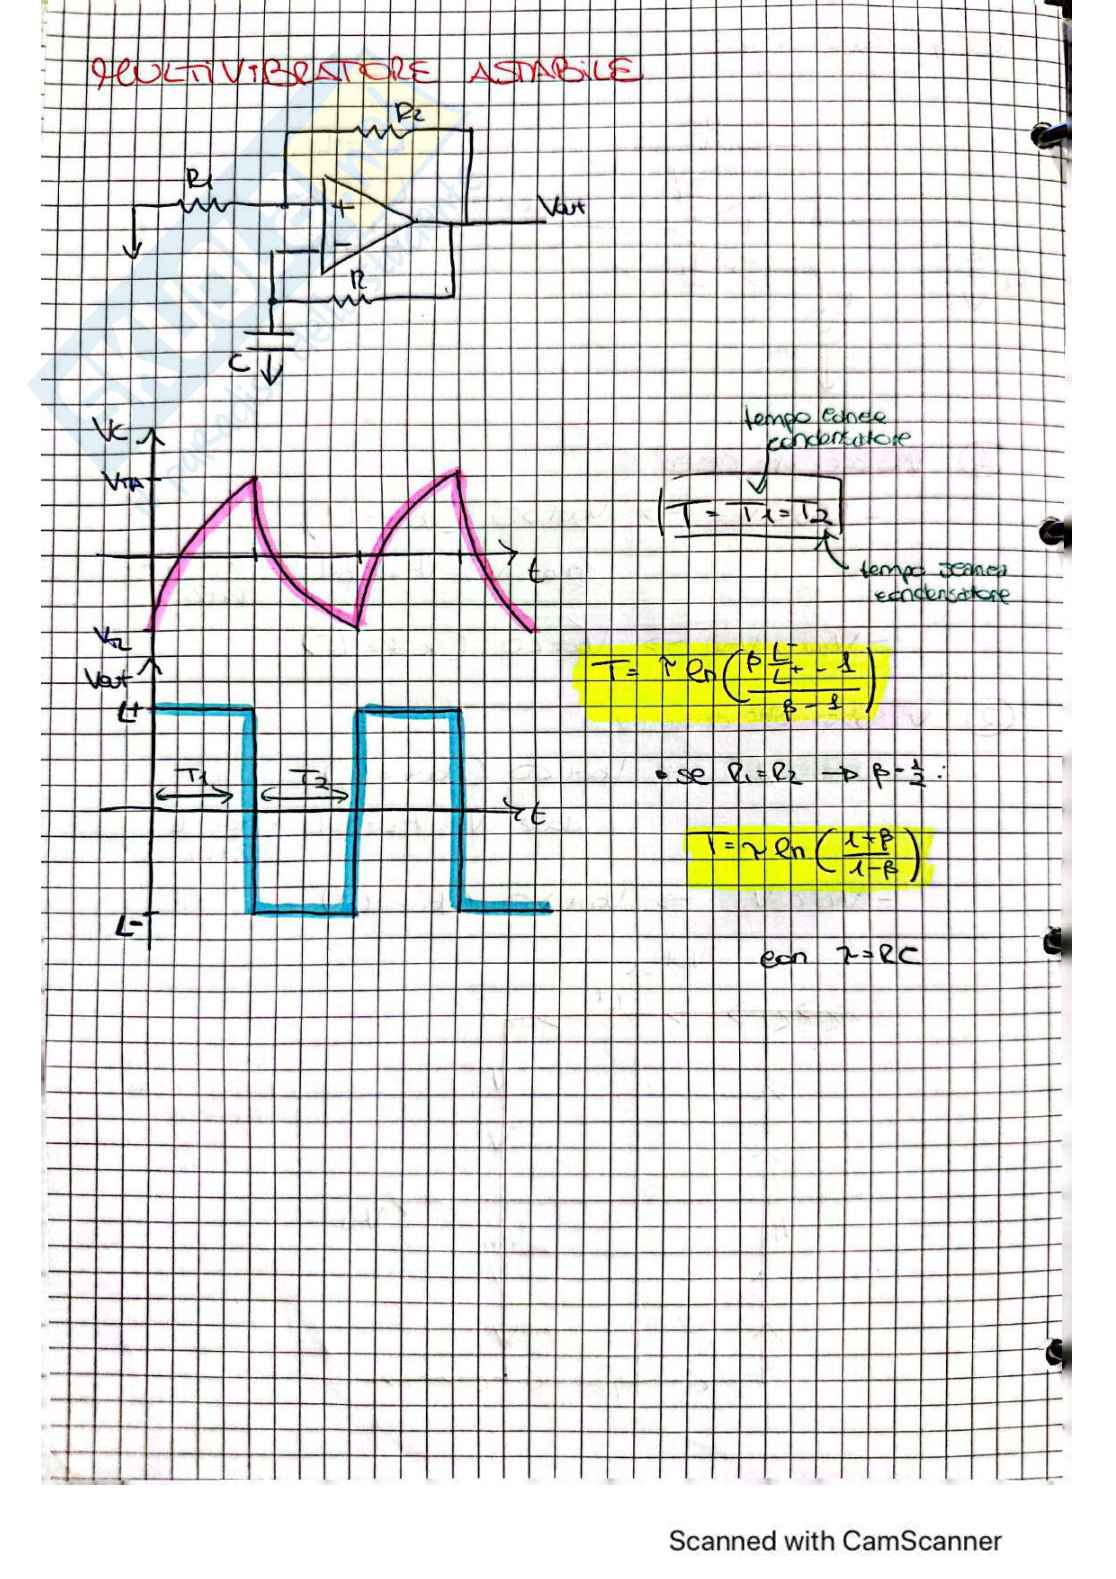 MULTIVIBRATORE ASTABILE
R2
R1
+
Vout
-
R
C
VC
VTH
t
VTL
tempo carica
condensatore
T = T1 = T2
tempo scarica
condensatore
T = τ ln( (β L-/L+ - 1) / (β - 1) )
Vout
L+
T1
T2
t
L-
• se R1=R2 → β = 1/2 :
T = τ ln ( (1+β) / (1-β) )
con τ = RC
Scanned with CamScanner